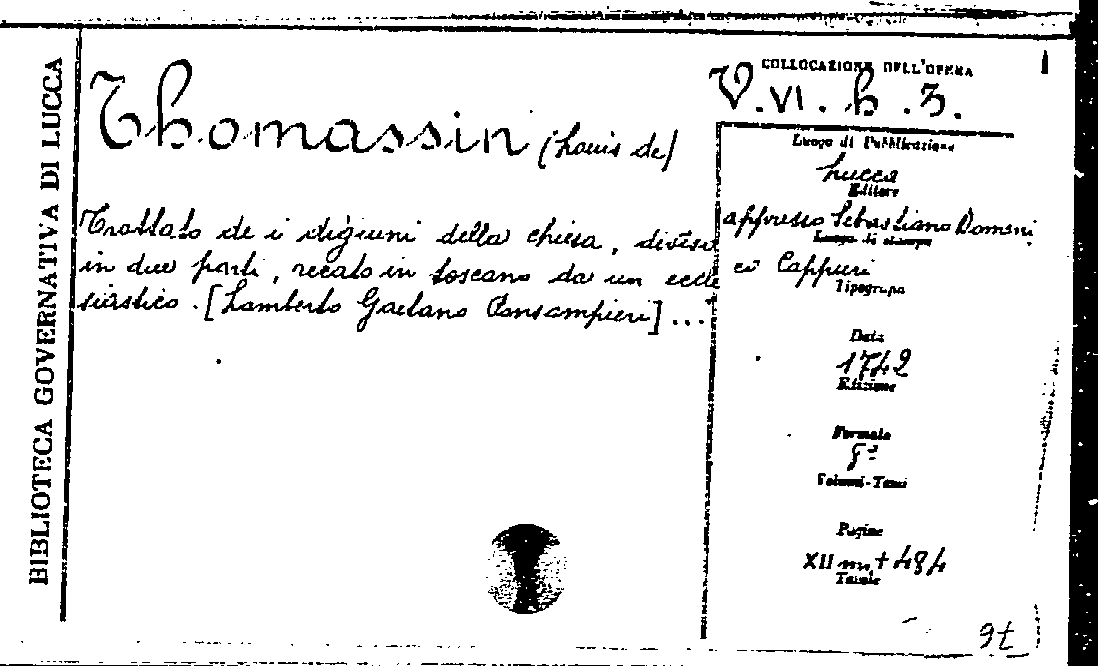 BIBLIOTECA GOVERNATIVA DI LUCCA
Thomassin (Louis de)
Trattato de i digiuni della chiesa, diviso
in due parti, recato in toscano da un eccle
siastico. [Lamberto Gaetano Consampieri] ...
COLLOCAZIONE DELL'OPERA
V.VI. h .3.
Luogo di Pubblicazione
Lucca
Editore
appresso Sebastiano Domeni
Luogo di stampa
co Cappuri
Tipografo
Data
1742
Edizione
Formato
8º
Volumi-Tomi
Pagine
XII nn + 484
Tavole